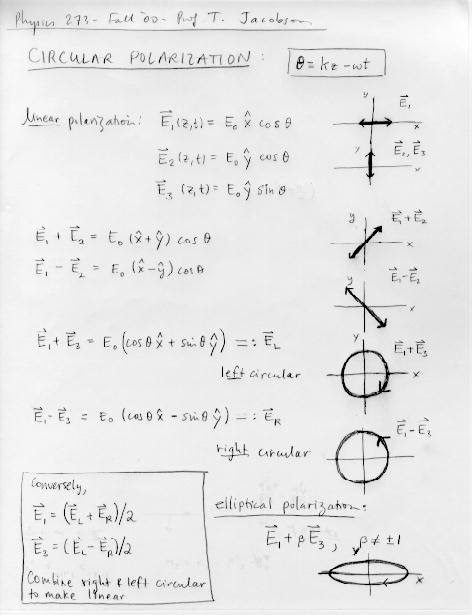 Physics 273 - Fall '00 - Prof T. Jacobson
CIRCULAR POLARIZATION :
θ = kz - ωt
linear polarization: E⃗₁(z,t) = E₀ x̂ cos θ
E⃗₂(z,t) = E₀ ŷ cos θ
E⃗₃(z,t) = E₀ ŷ sin θ
y
E⃗₁
x
y
E⃗₂, E⃗₃
x
E⃗₁ + E⃗₂ = E₀ (x̂+ŷ) cos θ
E⃗₁ - E⃗₂ = E₀ (x̂-ŷ) cos θ
y
E⃗₁+E⃗₂
x
y
E⃗₁-E⃗₂
x
E⃗₁ + E⃗₃ = E₀ (cos θ x̂ + sin θ ŷ) =: E⃗_L
left circular
y
E⃗₁+E⃗₃
x
E⃗₁ - E⃗₃ = E₀ (cos θ x̂ - sin θ ŷ) =: E⃗_R
right circular
E⃗₁-E⃗₃
Conversely,
E⃗₁ = (E⃗_L + E⃗_R)/2
E⃗₃ = (E⃗_L - E⃗_R)/2
Combine right & left circular
to make linear
elliptical polarization:
E⃗₁ + β E⃗₃, β ≠ ±1